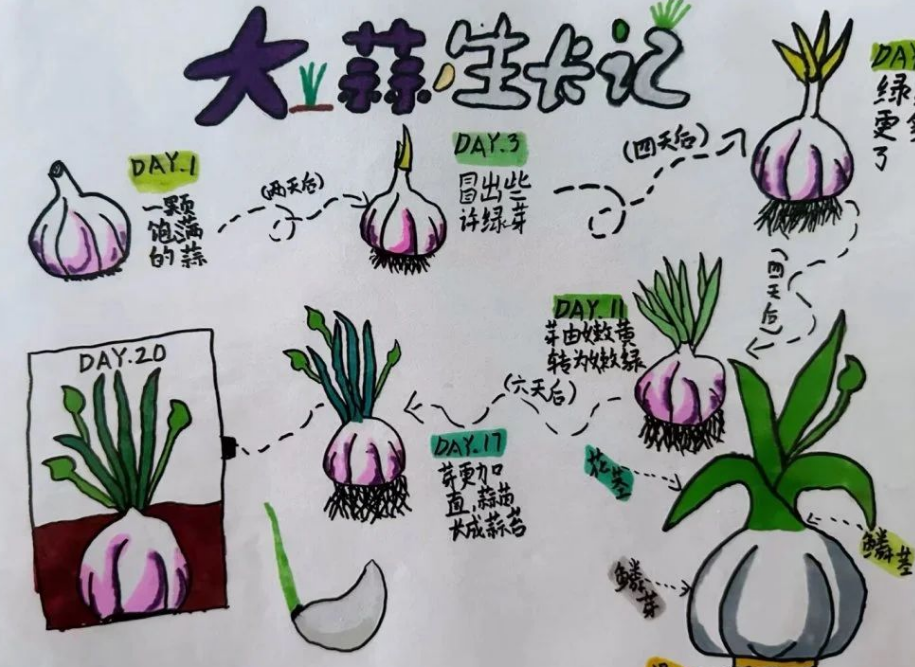 大蒜生长记
DAY.1
一颗
饱满
的蒜
(两天后)
DAY.3
冒出些
许绿芽
(四天后)
DA
绿
更
了
(四天后)
DAY.11
芽由嫩黄
转为嫩绿
(六天后)
DAY.17
芽更加
直,蒜苗
长成蒜苔
DAY.20
花茎
鳞茎
鳞芽